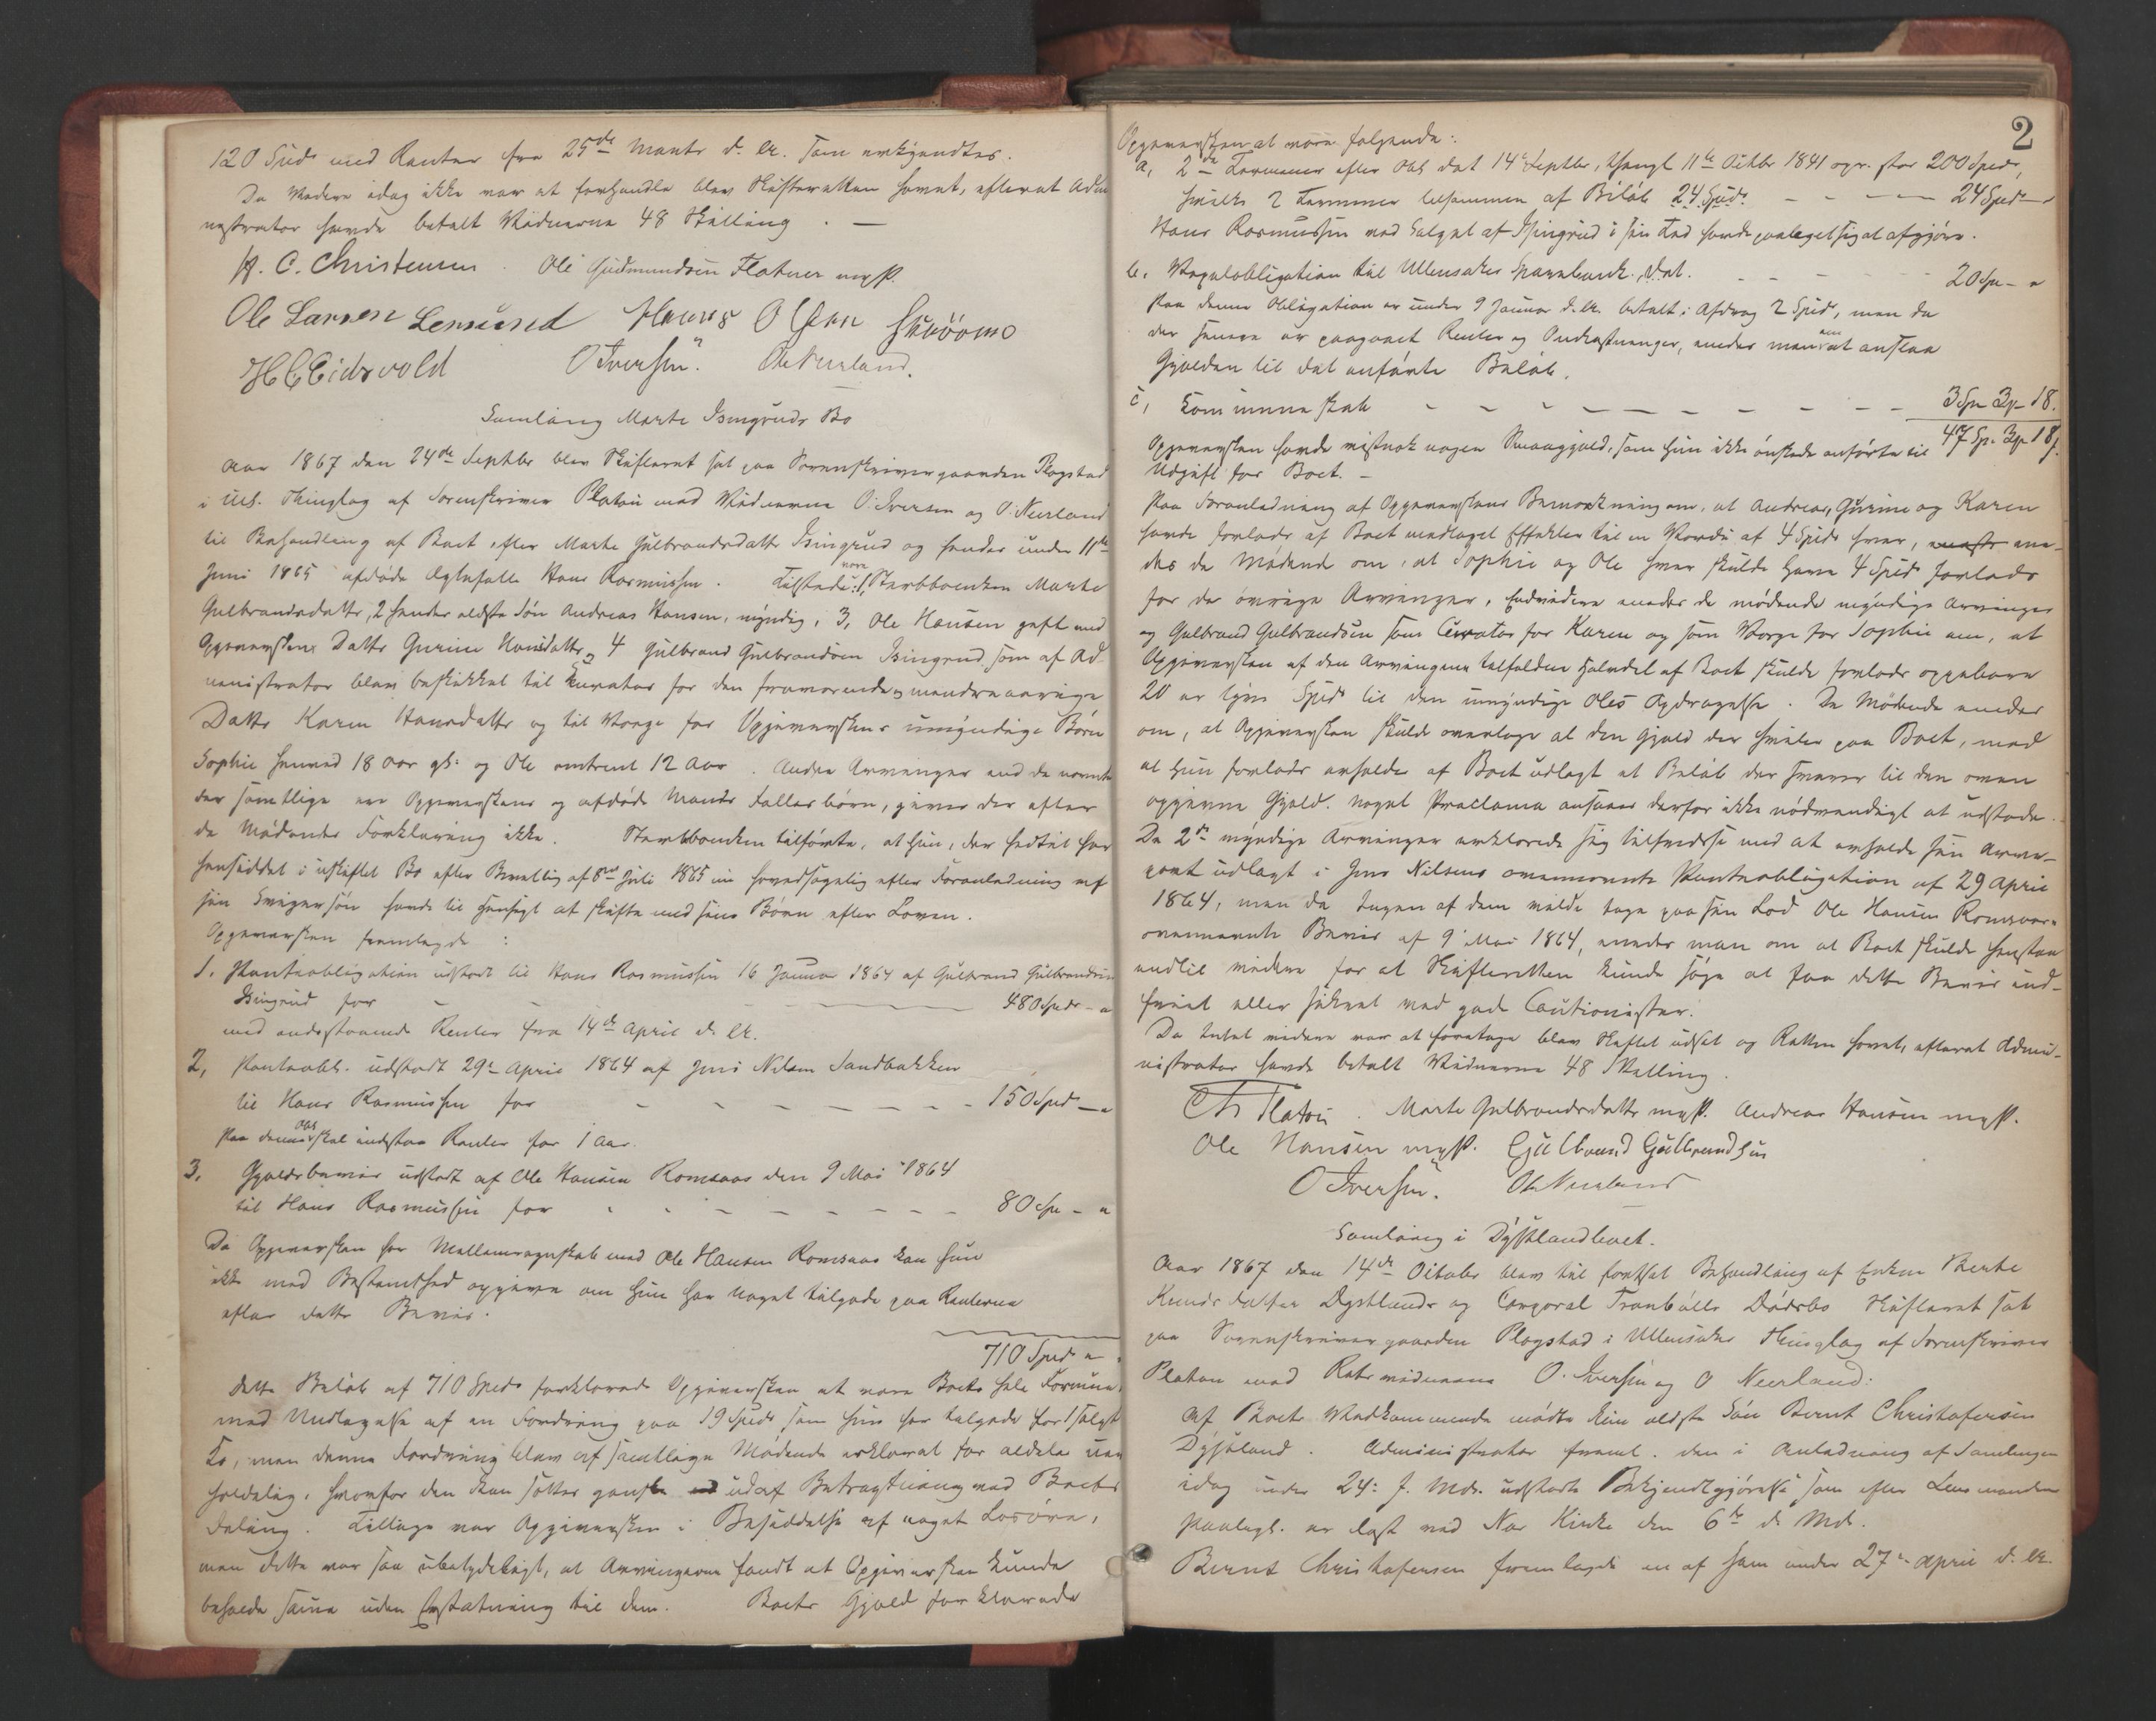 120 Spd. med Renter fra 25de Marts d. A. som erkjendtes.
Da Videre idag ikke var at forhandle blev Skifteretten hævet, efterat Admi
nistrator havde betalt Vidnerne 48 Skilling. —
H. C. Christensen. Ole Gudmundsen Flatner mpP.
Ole Larsen Lensund Hans Olsen
H C Eidsvold O Iversen. O Neerland.
Samling Marte Isingruds Bo
Aar 1867 den 24de Septbr blev Skifteret sat paa Sorenskrivergaarden Plogstad
i Ull. Thinglag af Sorenskriver Platou med Vidnerne O. Iversen og O. Neerland
til Behandling af Boet efter Marte Gulbrandsdatter Isingrud og hendes under 11te
Juni 1865 afdøde Ægtefælle Hans Rasmussen. Tilstede vare: 1, Sterbboenken Marte
Gulbrandsdatter, 2 hendes ældste Søn Andreas Hansen, myndig, 3, Ole Hansen gift med
Opgiverskens Datter Gurine Hansdatter, og 4 Gulbrand Gulbrandsen Isingrud, som af Ad-
ministrator blev beskikket til Kurator for den fraværende, mindreaarige
Datter Karen Hansdatter og til Værge for Opgiverskens umyndige Børn
Sophie henved 18 Aar gl. og Ole omtrent 12 Aar. Andre Arvinger end de nævnte
der samtlige ere Opgiverskens og afdøde Mands Fællesbørn, gives der efter
de Mødendes Forklaring ikke. Sterbboenken tilførte, at hun, der hidtil har
hensiddet i uskiftet Bo efter Bevilling af 8de Juli 1865 nu hovedsagelig efter Foranledning af
sin Svigersøn havde til Hensigt at skifte med sine Børn efter Loven.
Opgiversken fremlagde:
1. Panteobligation udstedt til Hans Rasmussen 16 Januar 1864 af Gulbrand Gulbrandsen
Isingrud for - - - 480 Spd. - "
med indestaaende Renter fra 14de April d. A.
2, Panteobl. udstedt 29de April 1864 af Jens Nilsen Sandbakken
til Hans Rasmussen for - - - - - - - 150 Spd. — "
Paa denne Obl. skal indestaa Renter for 1 Aar.
3. Gjeldsbevis udstedt af Ole Hansen Romsaas den 9 Mai 1864
til Hans Rasmussen for - - - - - - - - 80 Sp. - "
Da Opgiversken har Mellemregnskab med Ole Hansen Romsaas kan hun
ikke med Bestemthed opgive om hun har noget tilgode paa Renterne
efter dette Bevis.
710 Spd. " -
Dette Beløb af 710 Spd. forklarede Opgiversken at være Boets hele Formue,
med Undtagelse af en Fordring paa 19 Spd., som hun har tilgode for 1 solgt
Ko, men denne Fordring blev af samtlige Mødende erklæret for aldeles uer
holdelig, hvorfor den kan sættes ganske udaf Betragtning ved Boets
Deling. Tillige var Opgiversken i Besiddelse af noget Løsøre,
men dette var saa ubetydeligt, at Arvingerne fandt at Opgiversken kunde
beholde samme uden Erstatning til dem. Boets Gjeld forklarede
2
Opgiversken at være følgende:
a, 2de Terminer efter Obl. dat 14de Septbr, thinglt 11te Octbr 1841 opr. stor 200 Spd.,
hvilke 2 Terminer tilsammen af Beløb 24 Spd. - - - — 24 Spd. —
Hans Rasmussen ved Salget af Isingrud i sin Tid havde paalagt sig at afgjøre.
b. Vexelobligation til Ullensakers Sparebank, dat. - - - - - 20 Sp. - "
Paa denne Obligation er under 9 Januar d. A. betalt i Afdrag 2 Spd., men da
der senere er paagaaet Renter og Omkostninger, enedes man om at ansætte
Gjelden til det anførte Beløb.
c, Kommuneskat - - - - - - - - - - 3 Sp. 3 # 18.
47 Sp. 3 # 18 ß.
Opgiversken havde vistnok nogen Smaagjeld, som hun ikke ønskede anførte til
Udgift for Boet. -
Paa Foranledning af Opgiverskens Bemærkning om, at Andreas, Gurine og Karen
havde forlods af Boet medtaget Effekter til en Værdi af 4 Spd. hver, ene-
des de Mødende om, at Sophie og Ole hver skulde have 4 Spd. forlods
for de øvrige Arvinger. Endvidere enedes de mødende myndige Arvinger
og Gulbrand Gulbrandsen som Curator for Karen og som Værge for Sophie om, at
Opgiversken af den Arvingerne tilfaldne Halvdel af Boet skulde forlods oppebære
20 er tyve Spd. til den umyndige Oles Opdragelse. De Mødende enedes
om, at Opgiversken skulde overtage al den Gjeld der hviler paa Boet, med
at hun forlods erholder af Boet udlagt et Beløb der svarer til den oven
opgivne Gjeld. Noget Proclama ansaaes derfor ikke nødvendigt at udstede.
De 2de myndige Arvinger erklærede sig tilfredse med at erholde sin Arve-
part udlagt i Jens Nilsens ovennævnte Panteobligation af 29 April
1864, men da Ingen af dem vilde tage paa sin Lod Ole Hansen Romsaas's
ovennævnte Bevis af 9 Mai 1864, enedes man om at Boet skulde henstaa
indtil videre for at Skifteretten kunde søge at faa dette Bevis ind-
friet eller sikret ved gode Cautionister.
Da Intet videre var at foretage blev Skiftet udsat og Retten hævet, efterat Admi-
nistrator havde betalt Vidnerne 48 Skilling.
Platou. Marte Gulbrandsdatter mpP. Andreas Hansen mpP.
Ole Hansen mpP. Gulbrand Gulbrandsen
O Iversen. O Neerland
Samling i Dystlandboet.
Aar 1867 den 14de October blev til fortsat Behandling af Enken Berte
Knudsdatter Dystlands og Corporal Tranbølls Dødsbo Skifteret sat
paa Sorenskrivergaarden Plogstad i Ullensaker Thinglag af Sorenskriver
Platou med Retsvidnerne O. Iversen og O Neerland:
Af Boets Vedkommende mødte kun ældste Søn Bernt Christofersen
Dystland. Administrator freml. den i Anledning af Samlingen
idag under 24. f. Mds. udstedte Bekjendtgjørelse som efter Lensmandens
Paategn. er læst ved Næs Kirke den 6te ds. Mds.
Bernt Christofersen fremlagde en af ham under 27de April d. A.